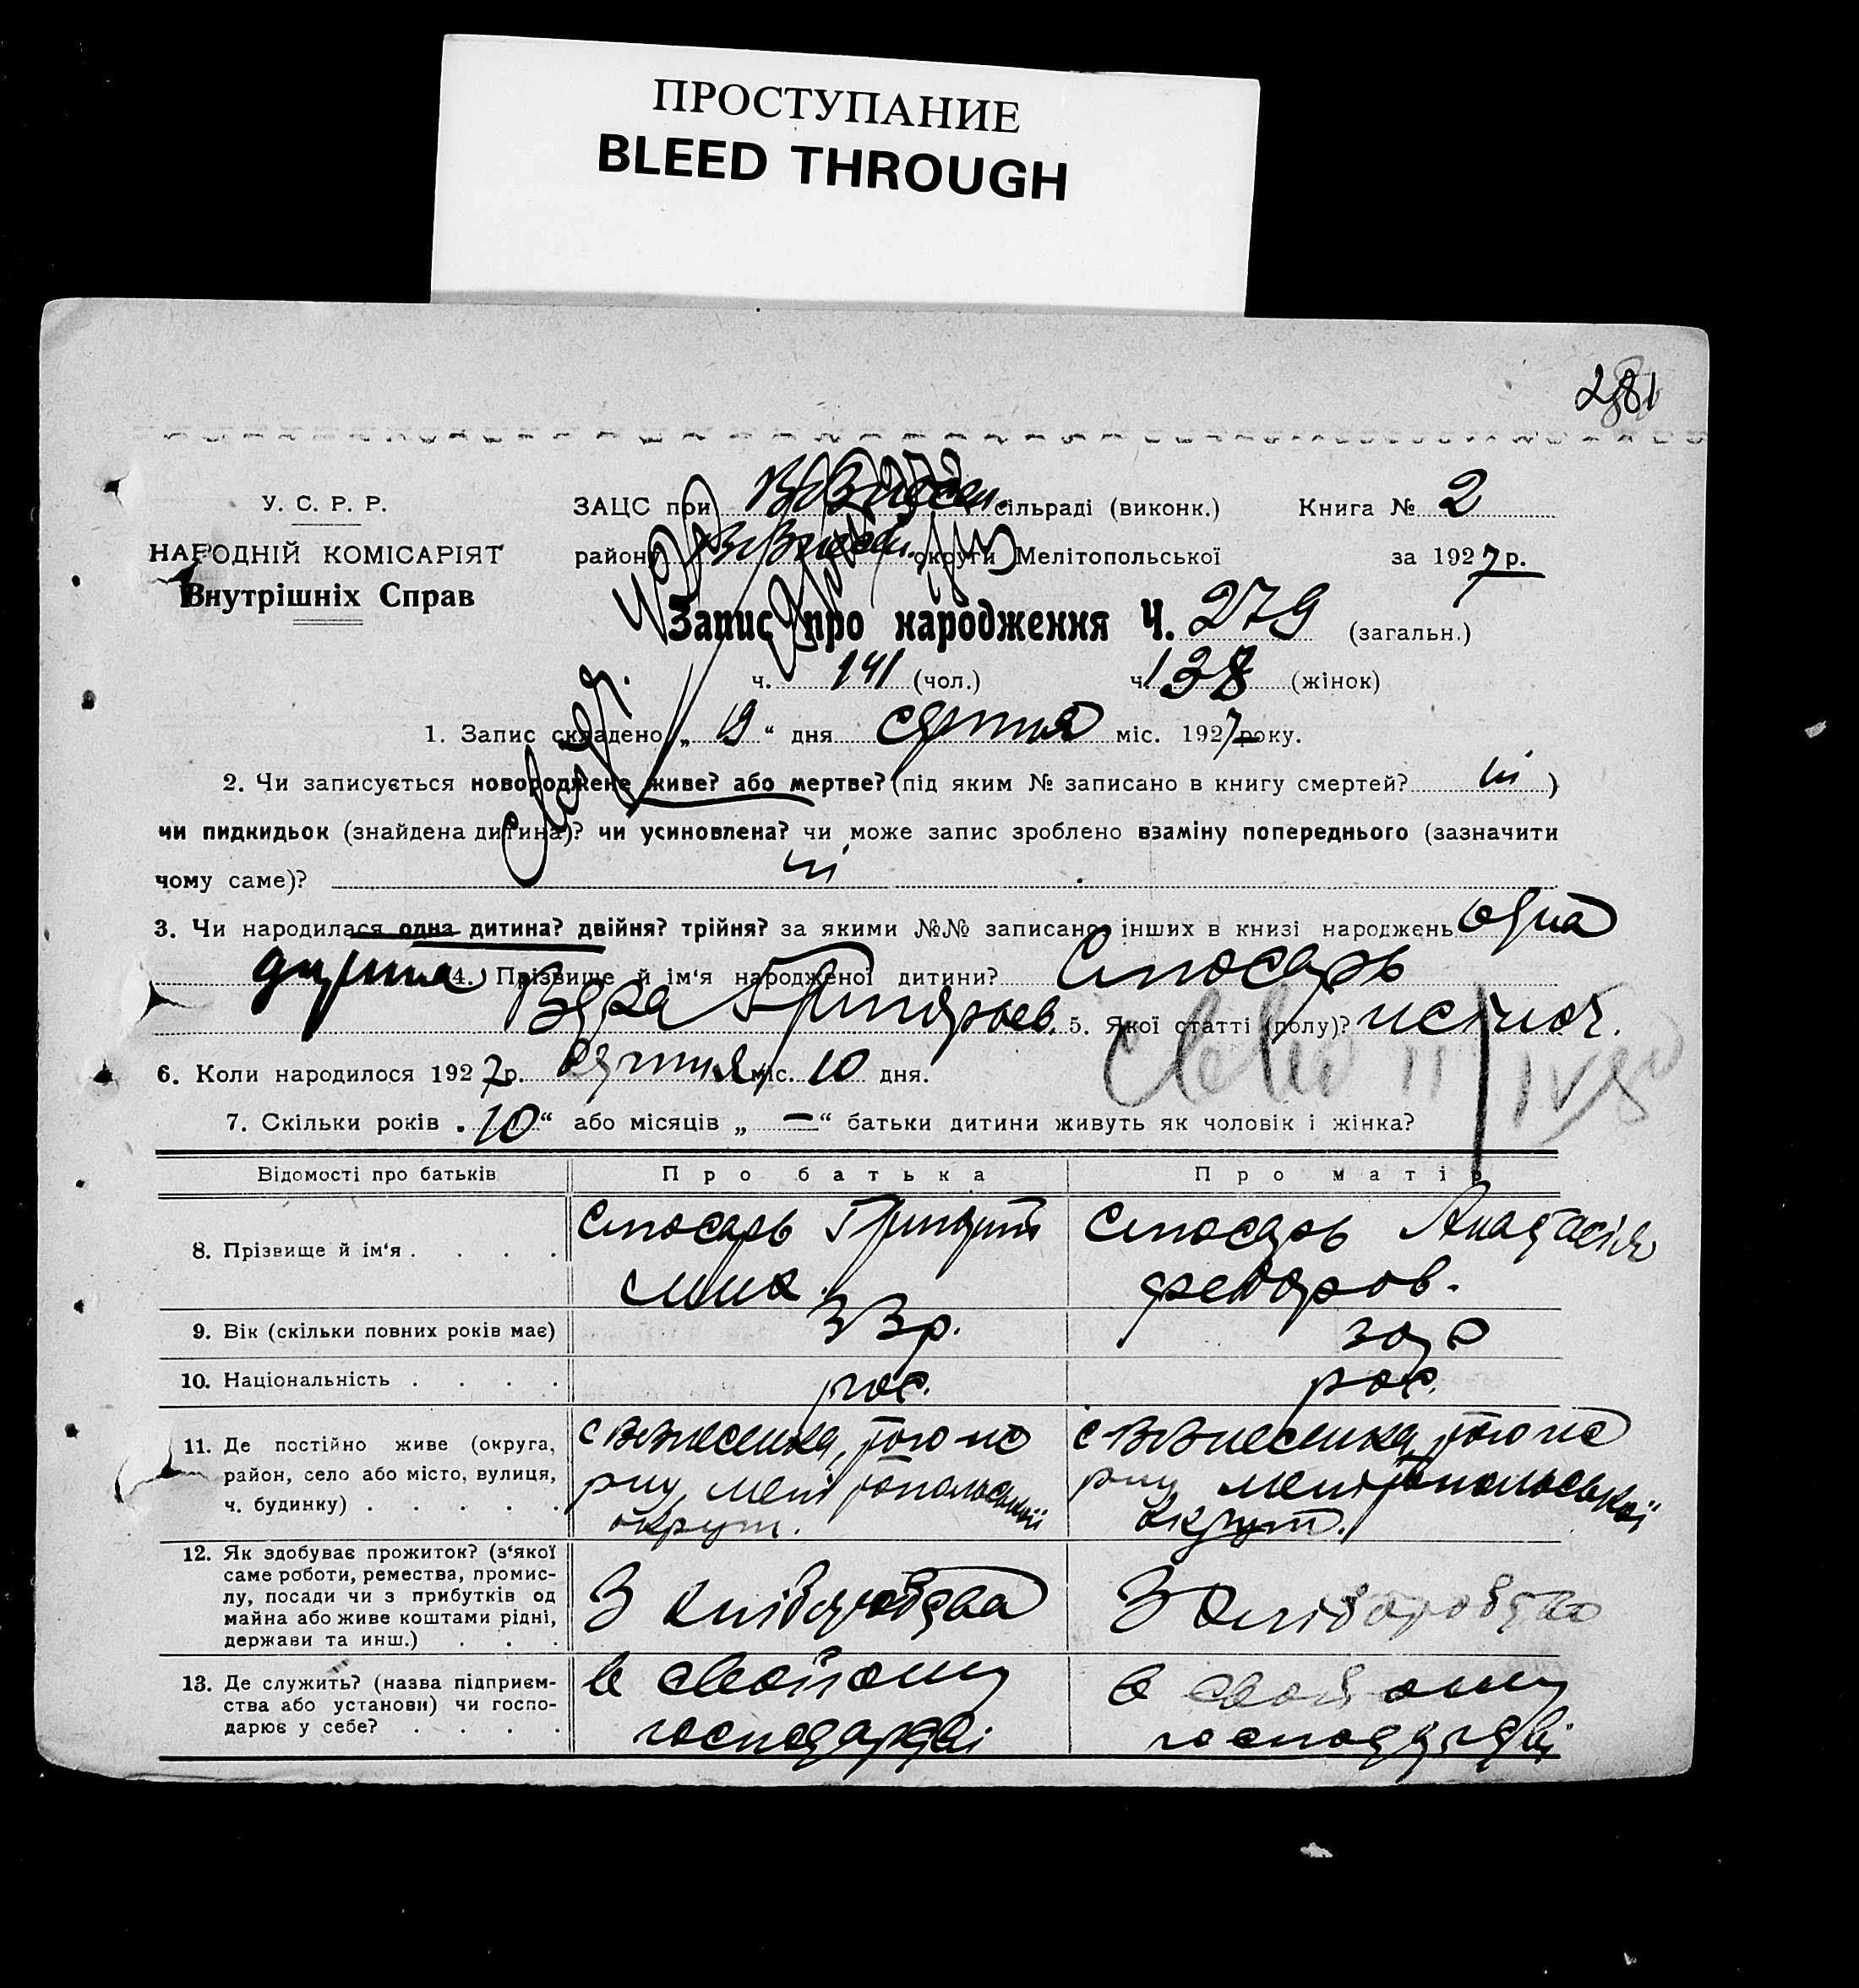 ПРОСТУПАНИЕ
BLEED THROUGH
281
У. С. Р. Р.
НАРОДНІЙ КОМІСАРІЯТ
Внутрішніх Справ
ЗАЦС при сільраді (виконк.) Книга № 2
району округи Мелітопольської за 1927 р.
Запис про народження Ч. 279 (загальн.)
ч. 141 (чол.) ч. 138 (жінок)
1. Запис складено „ 19 “ дня серпня міс. 1927 року.
2. Чи записується новороджене живе? або мертве? (під яким № записано в книгу смертей? ні )
чи пидкидьок (знайдена дитина)? чи усиновлена? чи може запис зроблено взаміну попереднього (зазначити
чому саме)? ні
3. Чи народилася одна дитина? двійня? трійня? за якими №№ записано інших в книзі народжень одна
дитина 4. Прізвище й ім'я народженої дитини? Слюсарь
Вера Григорьев. 5. Якої статті (полу)?
6. Коли народилося 1927 р. серпня міс. 10 дня.
7. Скільки років „ 10 “ або місяців „ — “ батьки дитини живуть як чоловік і жінка?
Відомості про батьків Про батька Про матір
8. Прізвище й ім'я . . . . Слюсарь Григорій Слюсарь Анастасія
Федоров.
9. Вік (скільки повних років має) 33 р.
10. Національність . . . . рос. рос.
11. Де постійно живе (округа, с Вознесенка, того-же с Вознесенка, того-же
район, село або місто, вулиця, р-ну, Мелітопольської р-ну Мелітопольської
ч. будинку) . . . . . округи. округи.
12. Як здобуває прожиток? (з'якої
саме роботи, ремества, промис-
лу, посади чи з прибутків од З хліборобства З хліборобства
майна або живе коштами рідні,
держави та инш.) . . .
13. Де служить? (назва підприєм- в свойому в свойому
ства або установи) чи госпо- господарстві господарстві
дарює у себе? . . . .